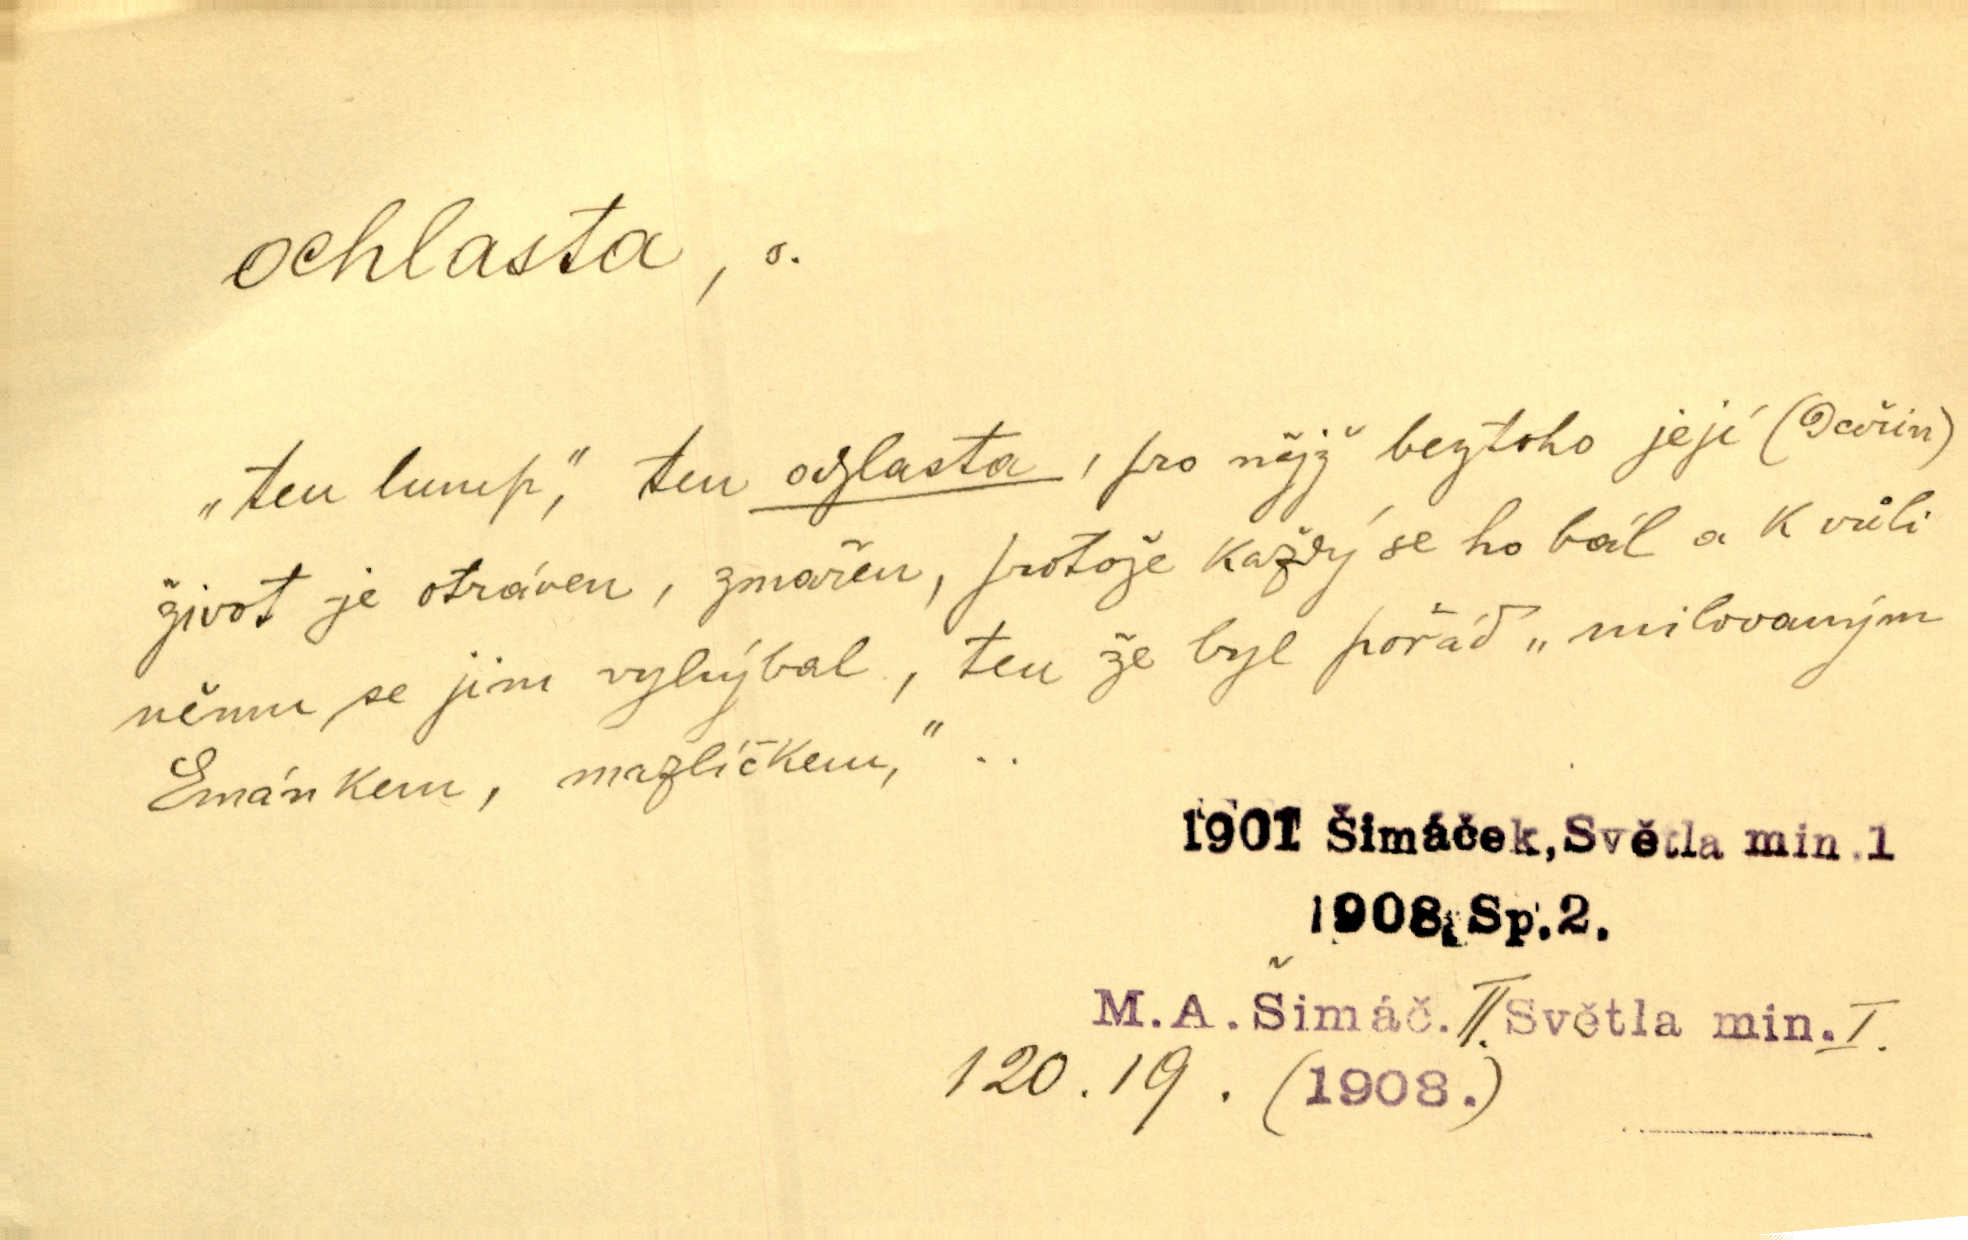 ochlasta, o.
„ten lump," ten ochlasta, pro nějž beztoho její (Dořin)
život je otráven, zmařen, protože každý se ho bál a k vůli
němu se jim vyhýbal, ten že byl pořád „milovaným
Emánkem, mazlíčkem," ..
1901 Šimáček, Světla min. 1
1908, Sp. 2.
M. A. Šimáč. II. Světla min. I.
120. 19. (1908.)